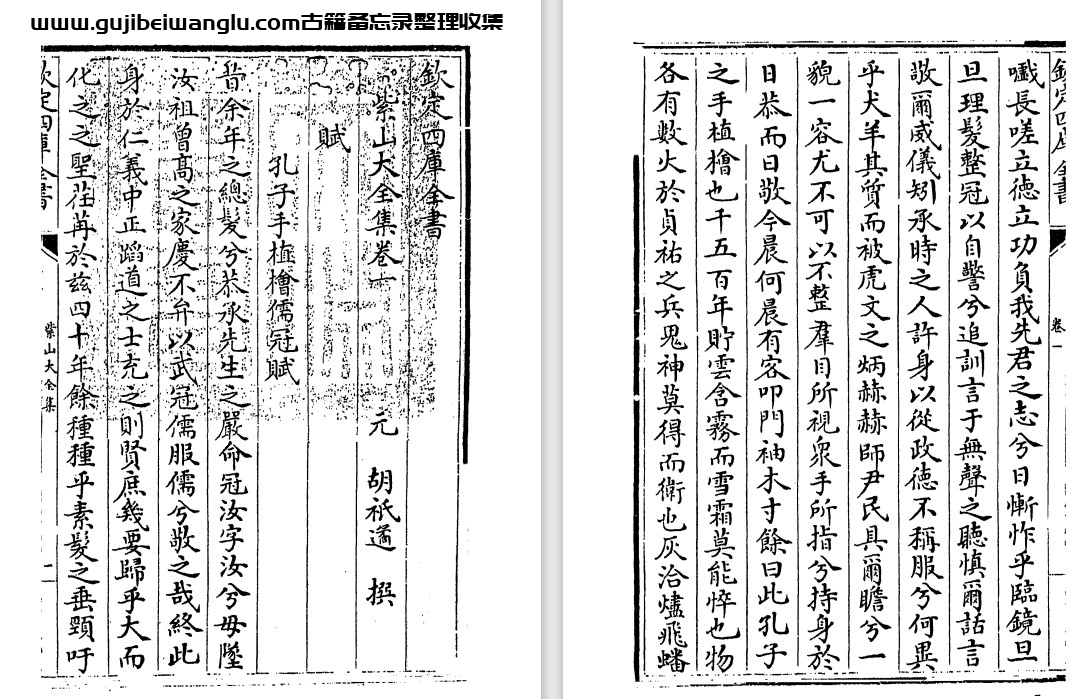 www.gujibeiwanglu.com古籍备忘录整理收集
欽定四庫全書
紫山大全集卷一
元 胡祗遹 撰
賦
孔子手植檜儒冠賦
昔余年之總髮兮恭承先生之嚴命冠汝字汝兮毋墜
汝祖曾高之家慶不弁以武冠儒服儒兮敬之哉終此
身於仁義中正蹈道之士充之則賢庶幾要歸乎大而
化之之聖荏苒於兹四十年餘種種乎素髮之垂頸吁
欽定四庫全書
紫山大全集
一
嘅長嗟立德立功負我先君之志兮日慚怍乎臨鏡旦
旦理髮整冠以自警兮追訓言于無聲之聽慎爾話言
敬爾威儀矧承時之人許身以從政德不稱服兮何異
乎犬羊其質而被虎文之炳赫赫師尹民具爾瞻兮一
貌一容尤不可以不整羣目所視衆手所指兮持身於
日恭而日敬今晨何晨有客叩門袖木寸餘曰此孔子
之手植檜也千五百年貯雲含霧而雪霜莫能悴也物
各有數火於貞祐之兵鬼神莫得而衛也灰洽燼飛蟠
欽定四庫全書
卷一